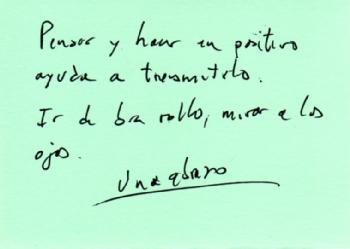 Pensar y hacer en positivo
ayuda a transmitirlo.
Ir de buen rollo, mirar a los
ojos.
Un abrazo